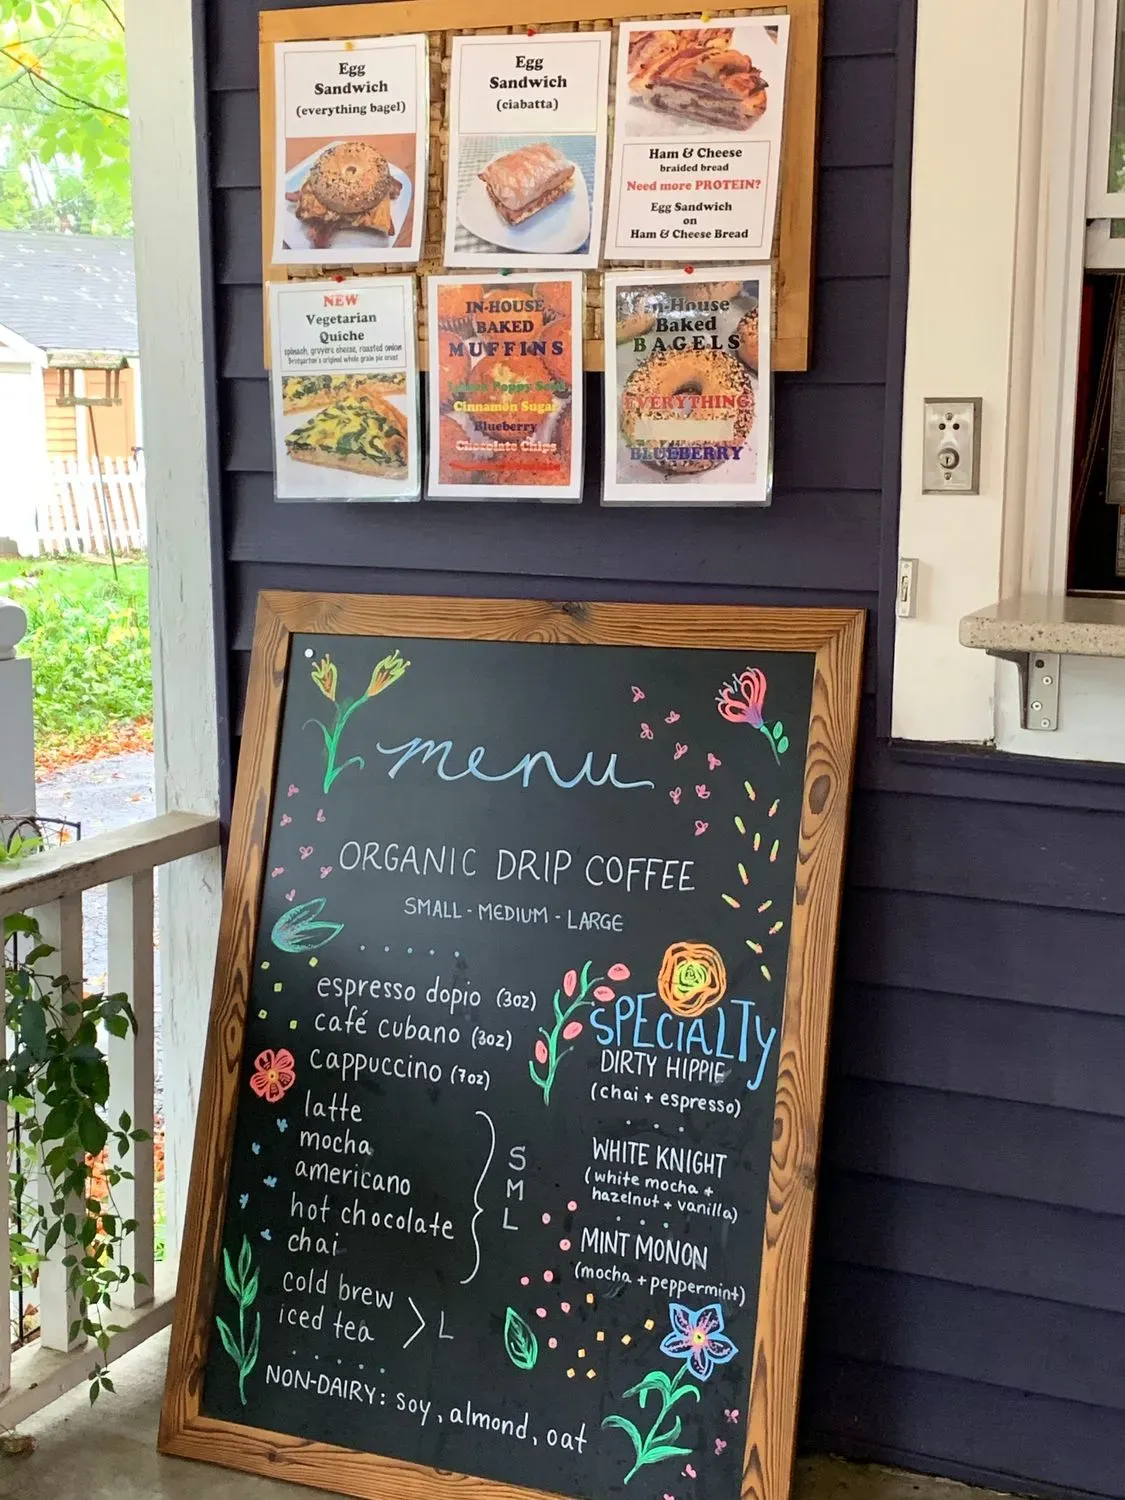 Egg
Sandwich
(everything bagel)
Egg
Sandwich
(ciabatta)
Ham & Cheese
braided bread
Need more PROTEIN?
Egg Sandwich
on
Ham & Cheese Bread
NEW
Vegetarian
Quiche
spinach, gruyere cheese, roasted onion
Brotgarten's original whole grain pie crust
IN-HOUSE
BAKED
MUFFINS
Lemon Poppy Seed
Cinnamon Sugar
Blueberry
Chocolate Chips
In-House
Baked
BAGELS
EVERYTHING
BLUEBERRY
menu
ORGANIC DRIP COFFEE
SMALL - MEDIUM - LARGE
espresso dopio (3oz)
café cubano (3oz)
cappuccino (7oz)
latte
mocha
americano
hot chocolate
chai
S
M
L
cold brew
iced tea
L
NON-DAIRY: soy, almond, oat
SPECIALTY
DIRTY HIPPIE
(chai + espresso)
WHITE KNIGHT
(white mocha +
hazelnut + vanilla)
MINT MONON
(mocha + peppermint)